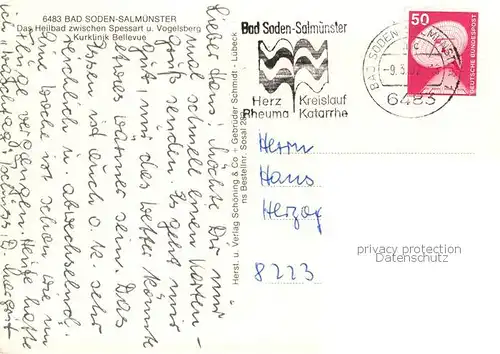 6483 BAD SODEN-SALMÜNSTER
Das Heilbad zwischen Spessart u. Vogelsberg
Kurklinik Bellevue
Lieber Hans, möchte Dir nur
mal schnell einen Karten-
gruß senden. Es geht mir
gut, nur das Wetter könnte
etwas wärmer sein. Das
Essen ist auch o.k. sehr
reichlich u. abwechselnd.
Eine Woche ist schon wie im
Fluge vergangen. Heute hatte
ich
Tschüss, D. Margrit
Herst. u. Verlag Schöning & Co + Gebrüder Schmidt · Lübeck
ns Bestellnr. Sosal
Bad Soden-Salmünster
Herz Kreislauf
Rheuma Katarrhe
BAD SODEN-SALMÜNSTER
-9.3.
6483
50
DEUTSCHE BUNDESPOST
Herrn
Hans
Herzog
8223
privacy protection
Datenschutz